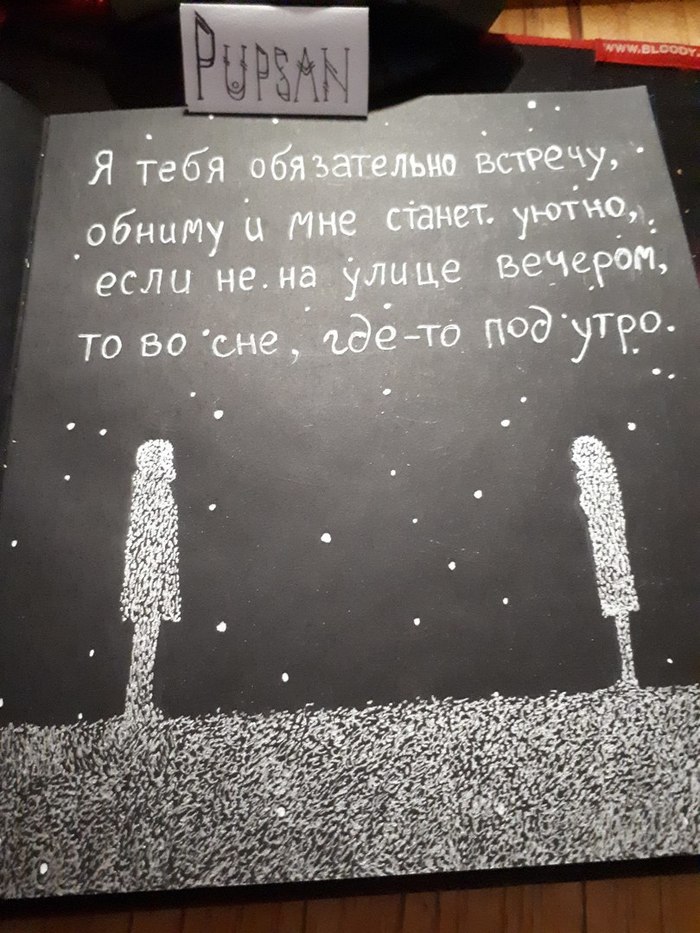 PUPSAN
WWW.BLOODY.
Я тебя обязательно встречу,
обниму и мне станет уютно,
если не на улице вечером,
то во сне, где-то под утро.